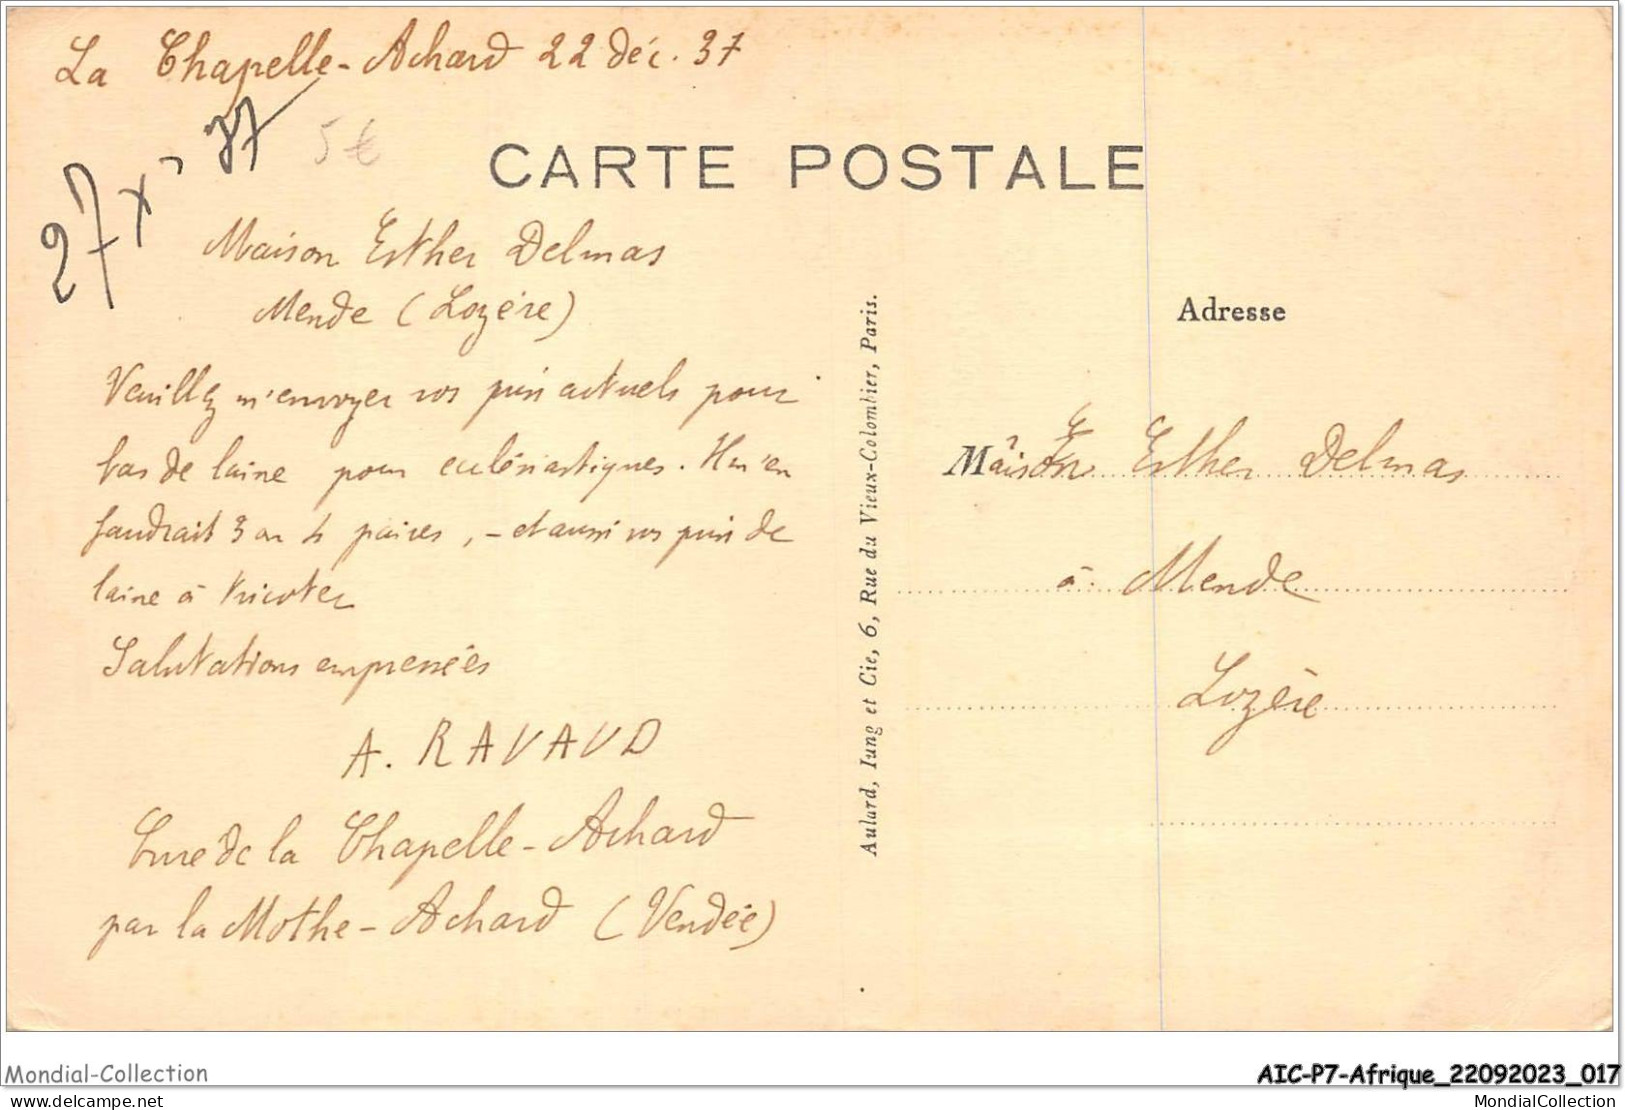 La Chapelle-Achard 22 déc. 37
27 X 37
5 €
CARTE POSTALE
Maison Esther Delmas
Mende (Lozère)
Veuillez m'envoyer vos prix actuels pour
bas de laine pour ecclésiastiques. Il m'en
faudrait 3 ou 4 paires, - et aussi vos prix de
laine à tricoter
Salutations empressées
A. RAVAUD
Cure de la Chapelle-Achard
par la Mothe-Achard (Vendée)
Aulard, Iung et Cie, 6, Rue du Vieux-Colombier, Paris.
Adresse
Maison Esther Delmas
à Mende
Lozère
Mondial-Collection
AIC-P7-Afrique_22092023_017
delcampe.net
MondialCollection